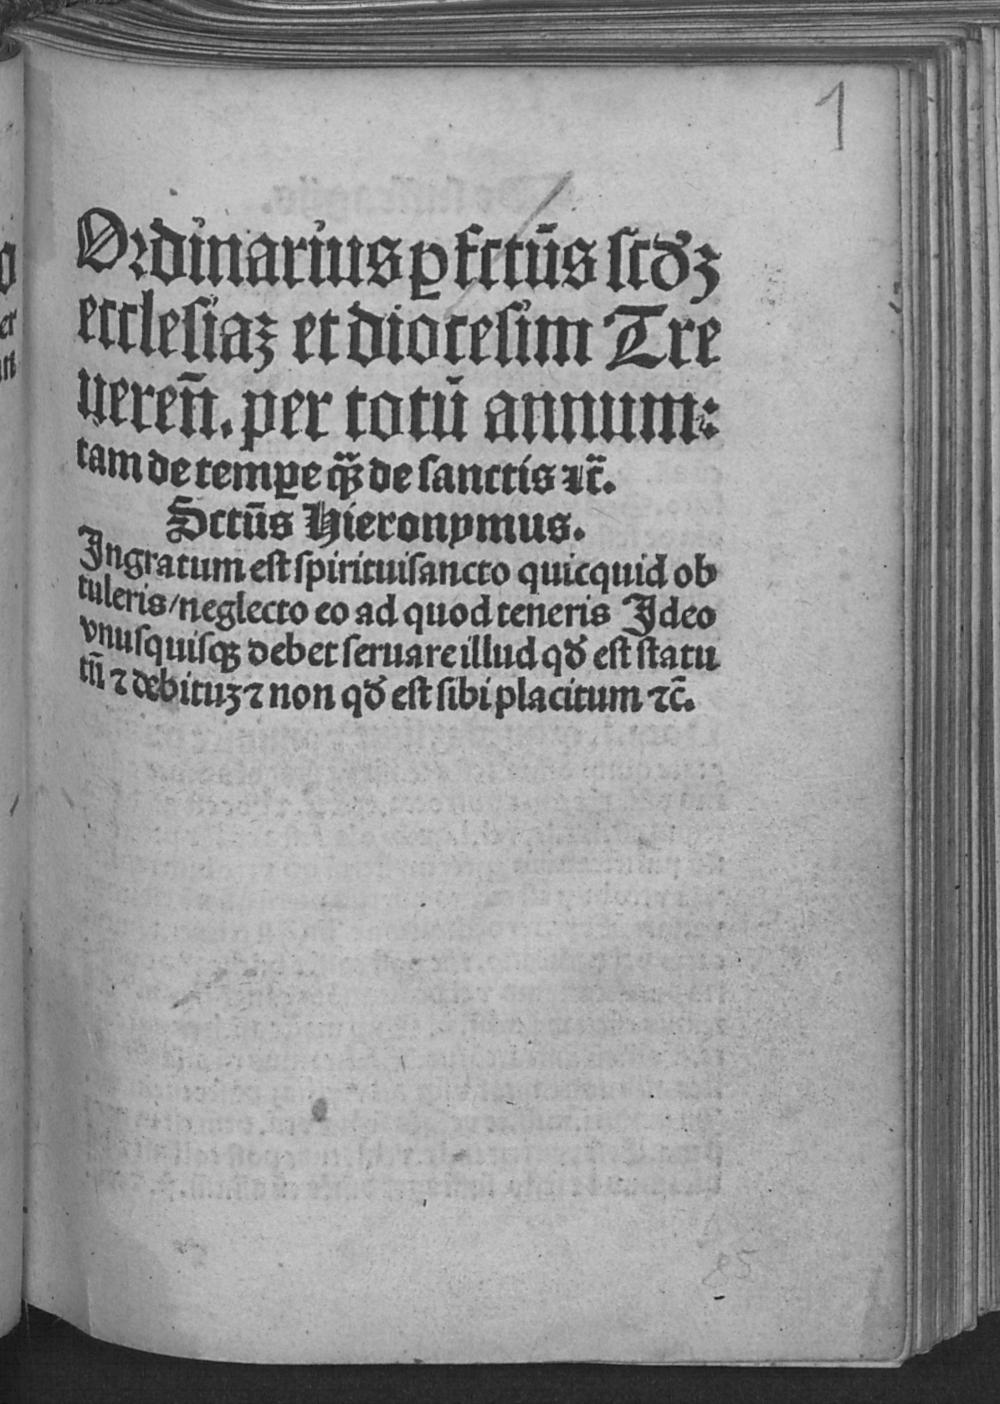 1
Ordinarius ꝑfctūs scd̕ꝫ
ecclesiaꝫ et diocesim Tre
ueren̄. per totū annum:
tam de tempe qꝫ̄ de sanctis ⁊c̄.
Sctūs Hieronymus.
Ingratum est spirituisancto quicquid ob
tuleris/neglecto eo ad quod teneris Ideo
vnusquisqꝫ debet seruare illud qd̕ est statu
tū ⁊ debituꝫ ⁊ non qd̕ est sibi placitum ⁊c̄.